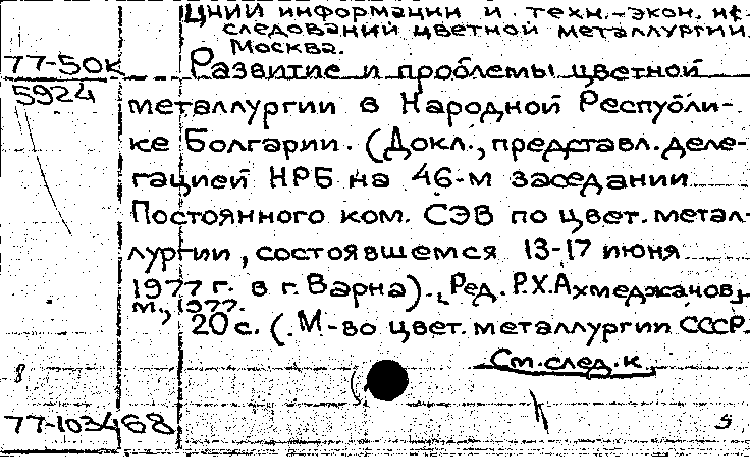 ЦНИИ информации и техн.-экон. ис-
следований цветной металлургии.
Москва.
77-50к
5924
Развитие и проблемы цветной
металлургии в Народной Республи-
ке Болгарии. (Докл., представл. деле-
гацией НРБ на 46-м заседании
Постоянного ком. СЭВ по цвет. метал-
лургии, состоявшемся 13-17 июня
1977 г. в г. Варна). Ред. Р.Х. Ахмеджанов,
М., 1977.
20 с. (М-во цвет. металлургии СССР.
См. след. к.
8
77-103468
5